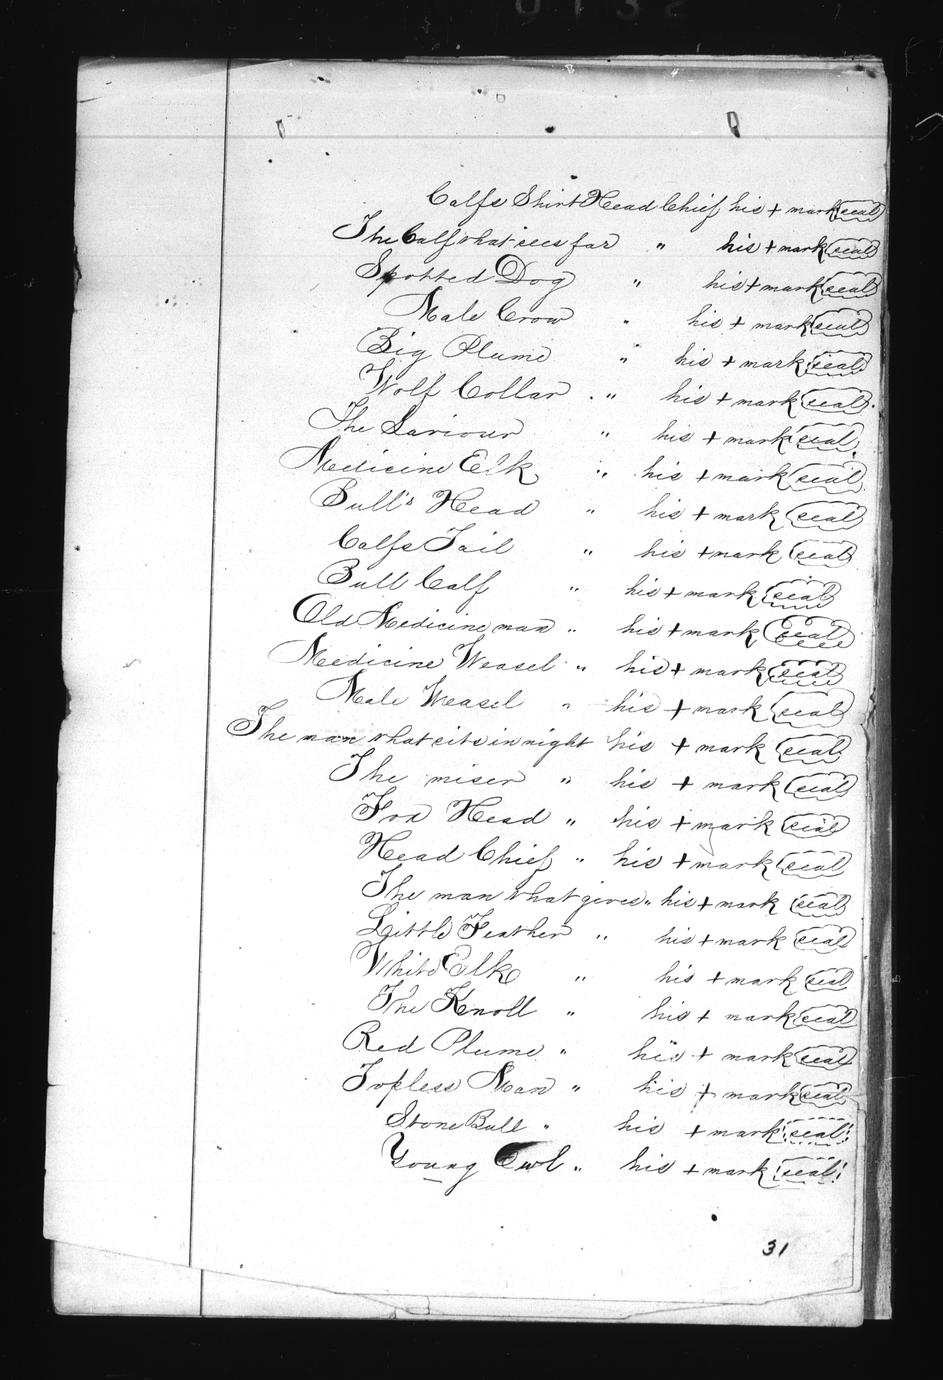 Calfs Shirt Head Chief his + mark seal
The Calf that sees far " his + mark seal
Spotted Dog " his + mark seal
Male Crow " his + mark seal
Big Plume " his + mark seal
Wolf Collar " his + mark seal
The Saviour " his + mark seal
Medicine Elk " his + mark seal
Bull's Head " his + mark seal
Calfs Tail " his + mark seal
Bull Calf " his + mark seal
Old Medicine man " his + mark seal
Medicine Weasel " his + mark seal
Male Weasel " his + mark seal
The man that sits in night his + mark seal
The miser " his + mark seal
Fox Head " his + mark seal
Head Chief " his + mark seal
The man that gives " his + mark seal
Little Feather " his + mark seal
White Elk " his + mark seal
The Knoll " his + mark seal
Red Plume " his + mark seal
Topless Man " his + mark seal
Stone Bull " his + mark seal
Young Owl " his + mark seal
31